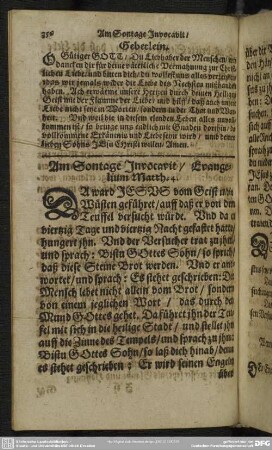 350 Am Sontage Invocavit/
Gebetlein.
GÜtiger GOTT/ Du Liebhaber der Menschen/ wir
dancken dir für deine
Liebe/ und bitten dich/ du wollest uns alles
wo jemals wider die
haben. Ach erwärme unsere Hertzen durch deinen Heiligen
Geist mit der Flamme der Liebe/ und hilff/ daß auch unsere
Liebe nicht sey in Worten/ sondern in der That und War-
Und weil wir in diesem elenden Leben alles
so bringe uns endlich mit Gnaden dorthin/ da
vollkommene Erkäntnis und Liebe seyn wird/ umb deines
lieben Sohns JEsu Christi willen/ Amen.
Am Sontage Invocavit/ Evange-
lium Matth. 4.
DA ward JESUS vom Geist in die
Wüsten geführet/ auff daß er von dem
Teuffel versucht würde. Und da er
viertzig Tage und viertzig Nacht gefastet hatte/
hungert ihn. Und der Versucher trat zu ihm/
und sprach: Bistu GOttes Sohn/ so sprich/
daß diese Steine Brot werden. Und er ant-
wortet/ und sprach: Es stehet geschrieben: Der
Mensch lebet nicht allein vom Brot/ sondern
von einem jeglichen Wort/ das durch den
Mund GOttes gehet. Da führet ihn der Teuf-
fel mit sich in die heilige Stadt/ und stellet ihn
auff die Zinne des Tempels/ und sprach zu ihm:
Bistu GOttes Sohn/ so laß dich hinab/ denn
es stehet geschrieben: Er wird seinen Engeln
über